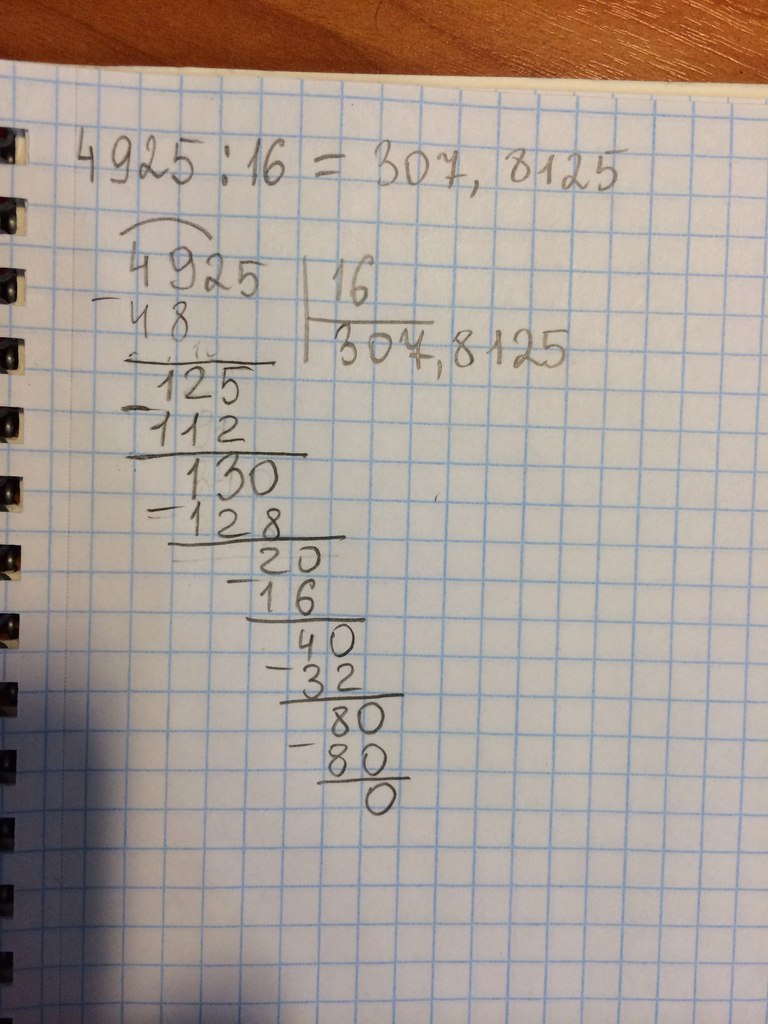 4925 : 16 = 307, 8125
4925 | 16
- 48 307,8125
125
- 112
130
- 128
20
- 16
40
- 32
80
- 80
0